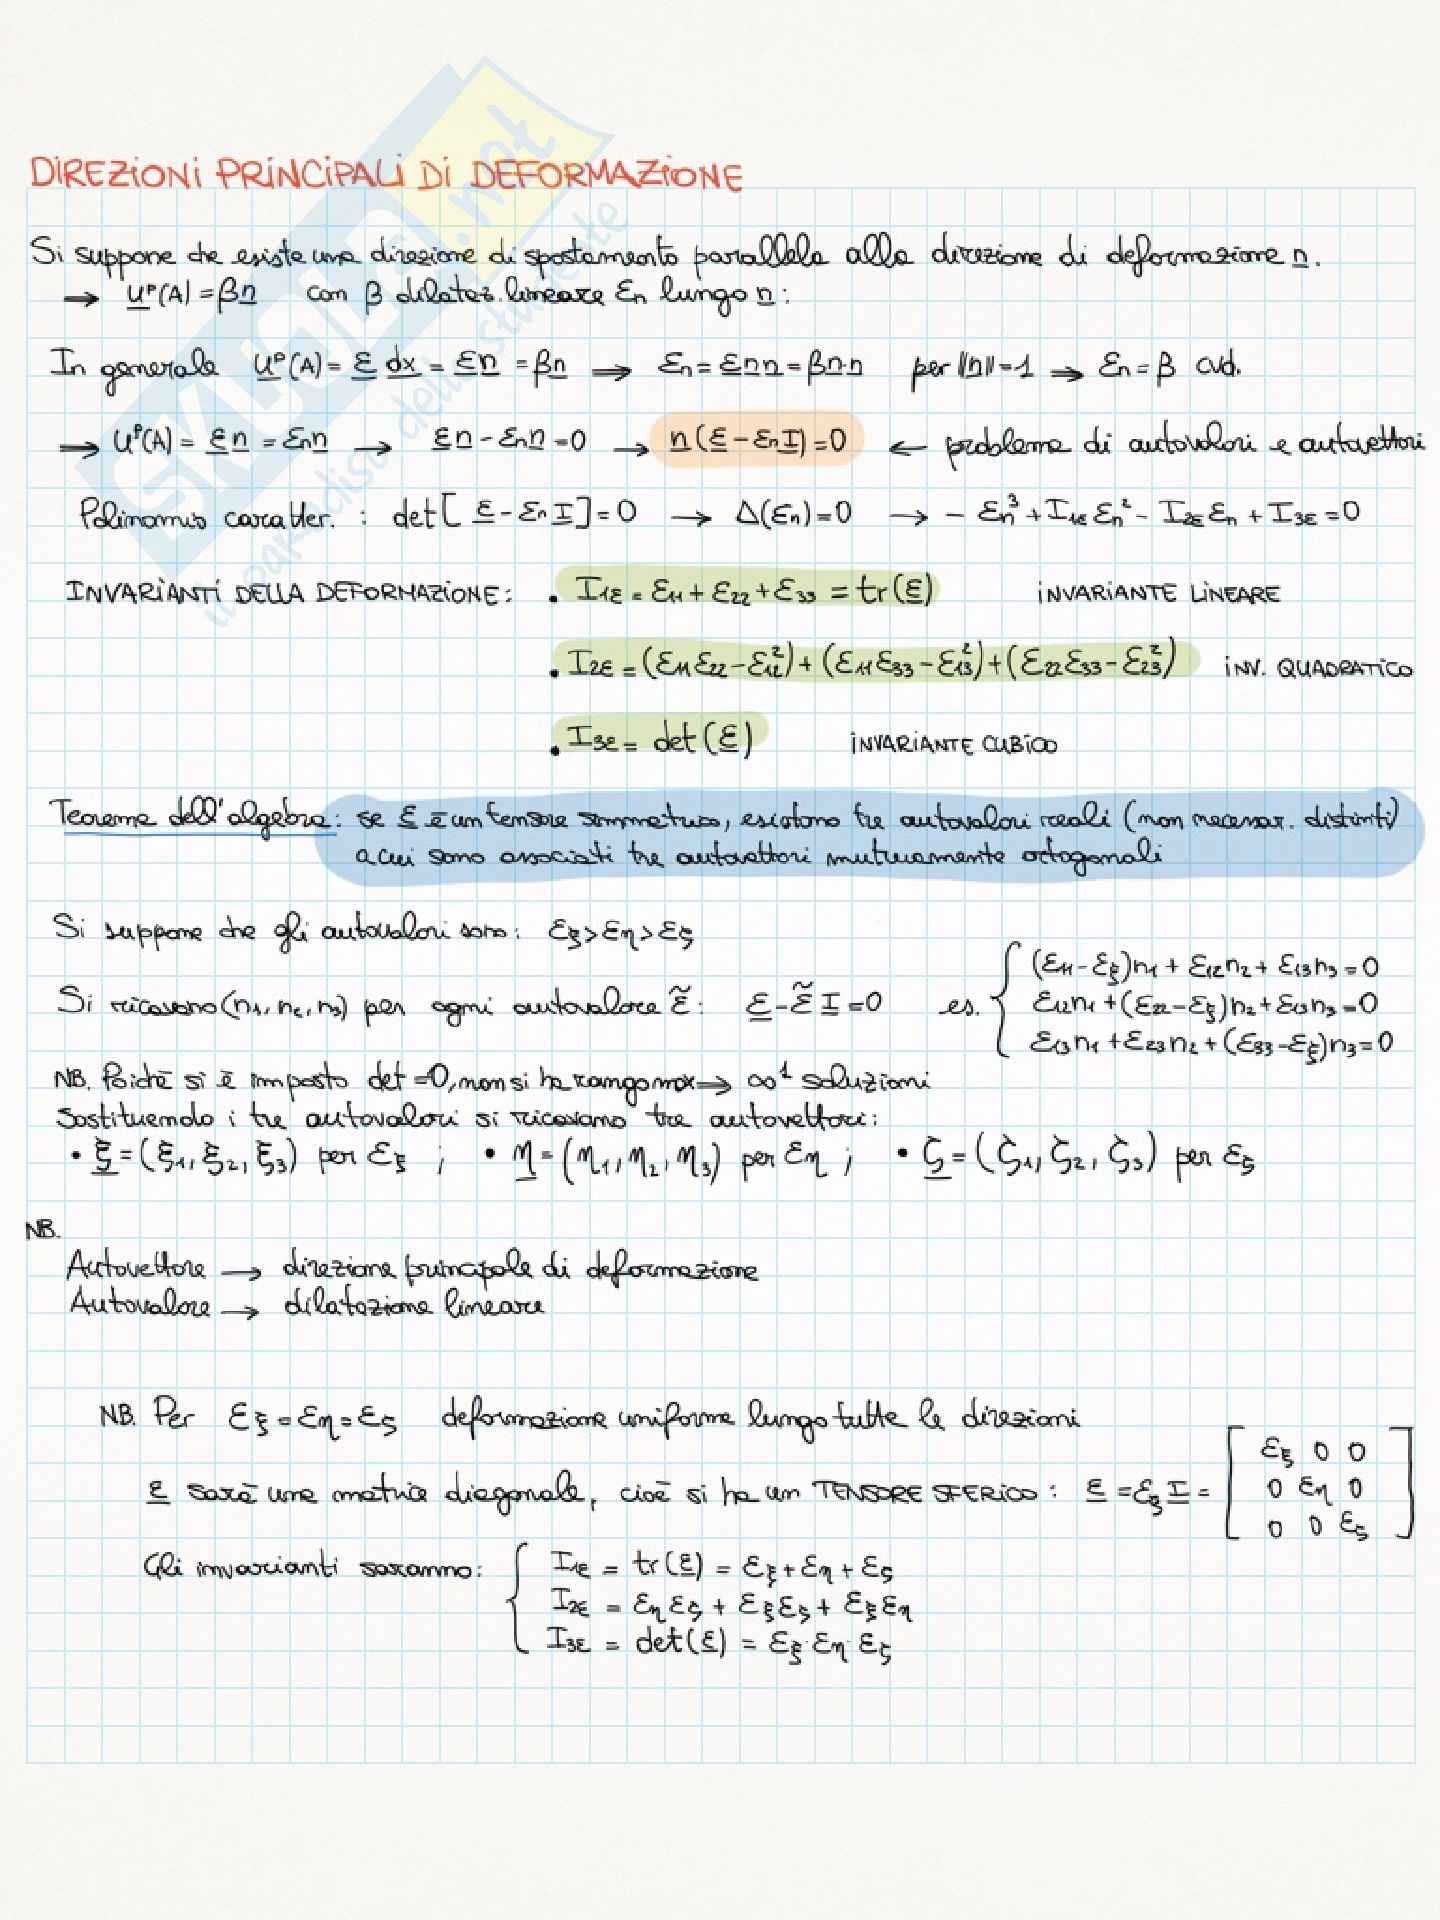 DIREZIONI PRINCIPALI DI DEFORMAZIONE
Si suppone che esista una direzione di spostamento parallela alla direzione di deformazione n.
→ uᵖ(A) = βn con β dilataz. lineare εn lungo n:
In generale uᵖ(A) = ε dx = εn = βn → εn = εnn = βn·n per ||n|| = 1 → εn = β cvd.
→ uᵖ(A) = εn = εnn → εn - εnn = 0 → n(ε - εnI) = 0 ← problema di autovalori e autovettori
Polinomio caratter. : det[ε - εnI] = 0 → Δ(εn) = 0 → - εn³ + I1ε εn² - I2ε εn + I3ε = 0
INVARIANTI DELLA DEFORMAZIONE: • I1ε = ε11 + ε22 + ε33 = tr(ε) INVARIANTE LINEARE
• I2ε = (ε11ε22 - ε12²) + (ε11ε33 - ε13²) + (ε22ε33 - ε23²) INV. QUADRATICO
• I3ε = det(ε) INVARIANTE CUBICO
Teorema dell'algebra: se ε è un tensore simmetrico, esistono tre autovalori reali (non necessar. distinti)
a cui sono associati tre autovettori mutuamente ortogonali
Si suppone che gli autovalori sono: εξ > εη > εζ
Si ricavano (n1, n2, n3) per ogni autovalore ε̃: ε - ε̃ I = 0 es. { (ε11 - εξ)n1 + ε12n2 + ε13n3 = 0
ε12n1 + (ε22 - εξ)n2 + ε13n3 = 0
ε13n1 + ε23n2 + (ε33 - εξ)n3 = 0
NB. Poichè si è imposto det = 0, non si ha rango max → ∞¹ soluzioni
Sostituendo i tre autovalori si ricavano tre autovettori:
• ξ = (ξ1, ξ2, ξ3) per εξ ; • η = (η1, η2, η3) per εη ; • ζ = (ζ1, ζ2, ζ3) per εζ
NB.
Autovettore → direzione principale di deformazione
Autovalore → dilatazione lineare
NB. Per εξ = εη = εζ deformazione uniforme lungo tutte le direzioni
ε sarà una matrice diagonale, cioè si ha un TENSORE SFERICO : ε = εξ I = [ εξ 0 0
0 εη 0
0 0 εζ ]
Gli invarianti saranno: { I1ε = tr(ε) = εξ + εη + εζ
I2ε = εηεζ + εξεζ + εξεη
I3ε = det(ε) = εξ·εη·εζ
SKUOLA.net
il paradiso dello studente